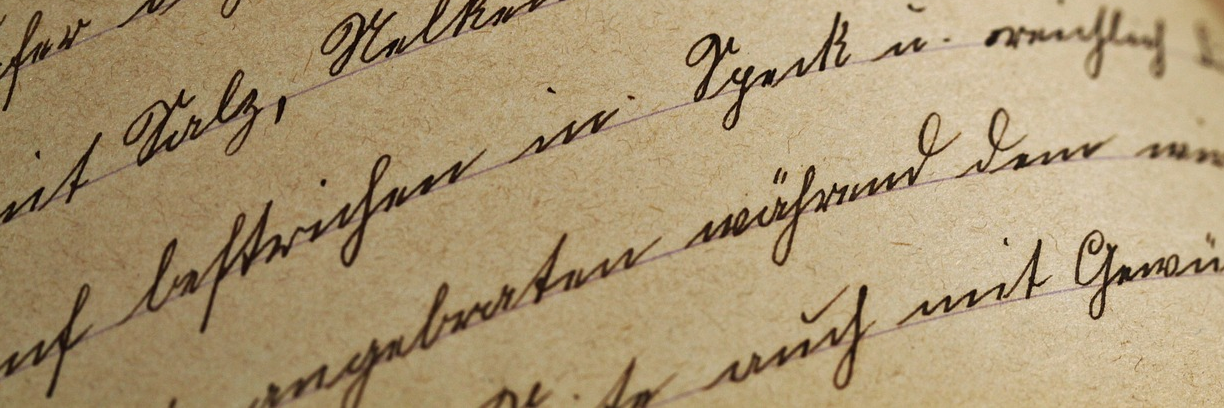 mit Salz, Nelken
bestrichen in Speck u. reichlich
angebraten während dem
auch mit Gewü